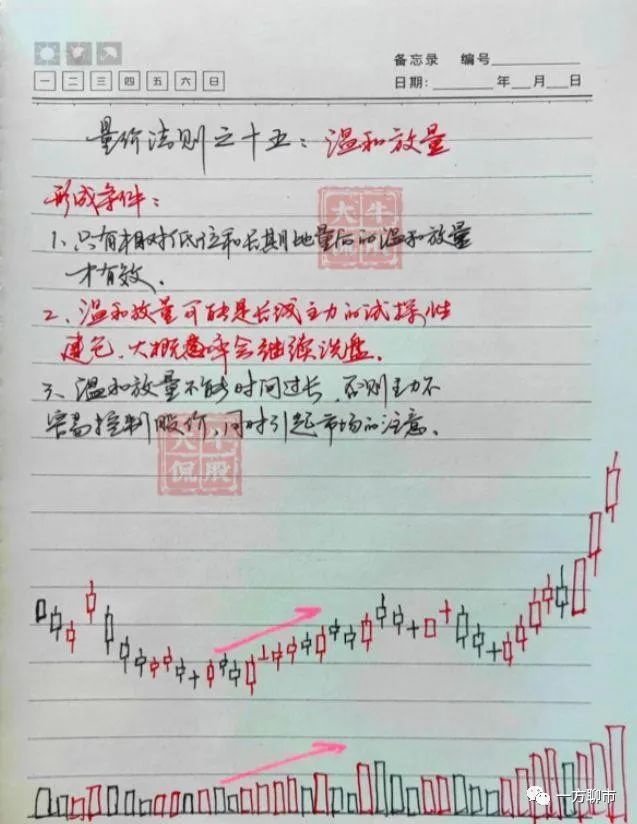 备忘录 编号
一 二 三 四 五 六 日
日期: 年 月 日
量价法则之十五：温和放量
形成条件：
1、只有相对低位和长期地量后的温和放量
才有效.
2、温和放量可能是长线主力的试探性
建仓、大概率会继续洗盘.
3、温和放量不能时间过长、否则主力不
容易控制股价,同时引起市场的注意.
大牛
侃股
大牛
侃股
一方聊市